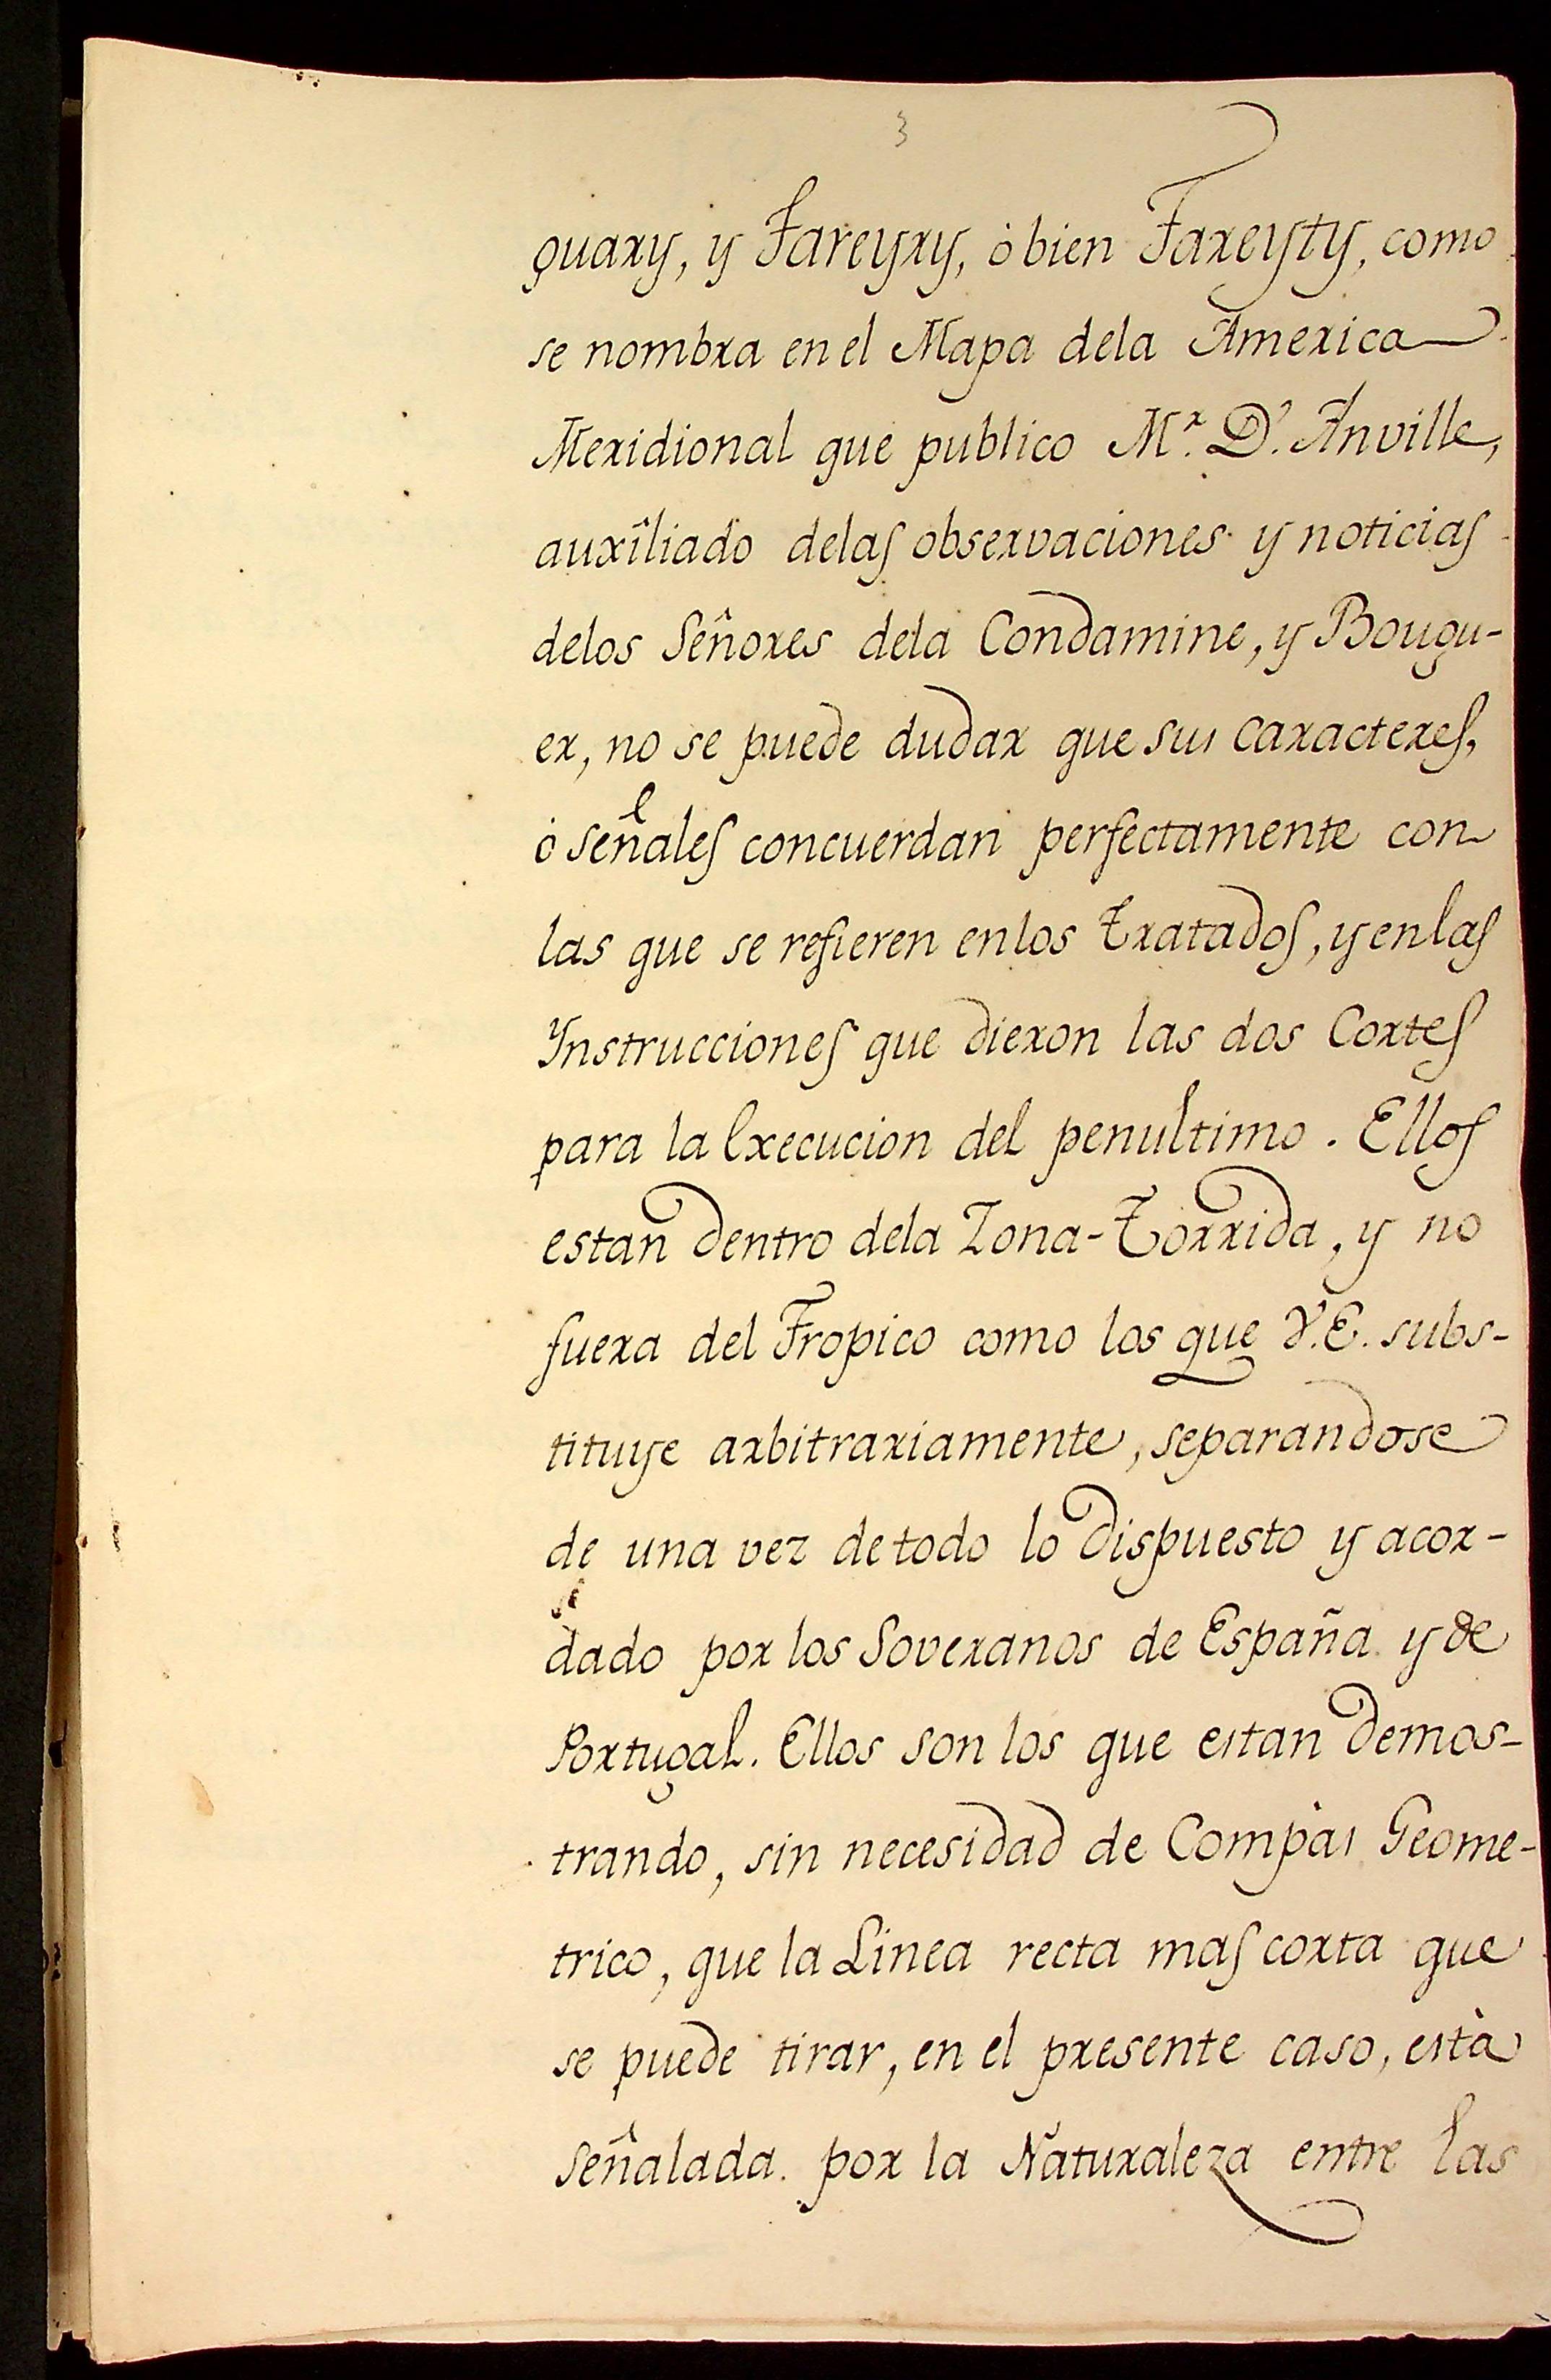 3
guary, y Jareyry, ò bien Tareyty, como
se nombra en el Mapa dela America
Meridional que publico M.r D'. Anville,
auxîliado delas observaciones y noticias
delos Señores dela Condamine, y Bougu-
er, no se puede dudar que sus caracteres,
ò señales concuerdan perfectamente con
las que se refieren enlos Tratados, y enlas
Ynstrucciones que dieron las dos Cortes
para la Execucion del penultimo. Ellos
estan dentro dela Zona-Torrida, y no
fuera del Tropico como los que V.E. subs-
tituye arbitrariamente, separandose
de una vez detodo lo dispuesto y acor-
dado por los Soveranos de España y de
Portugal. Ellos son los que estan demos-
trando, sin necesidad de Compàs Geome-
trico, que la Linea recta mas corta que
se puede tirar, en el presente caso, està
señalada por la Naturaleza entre las